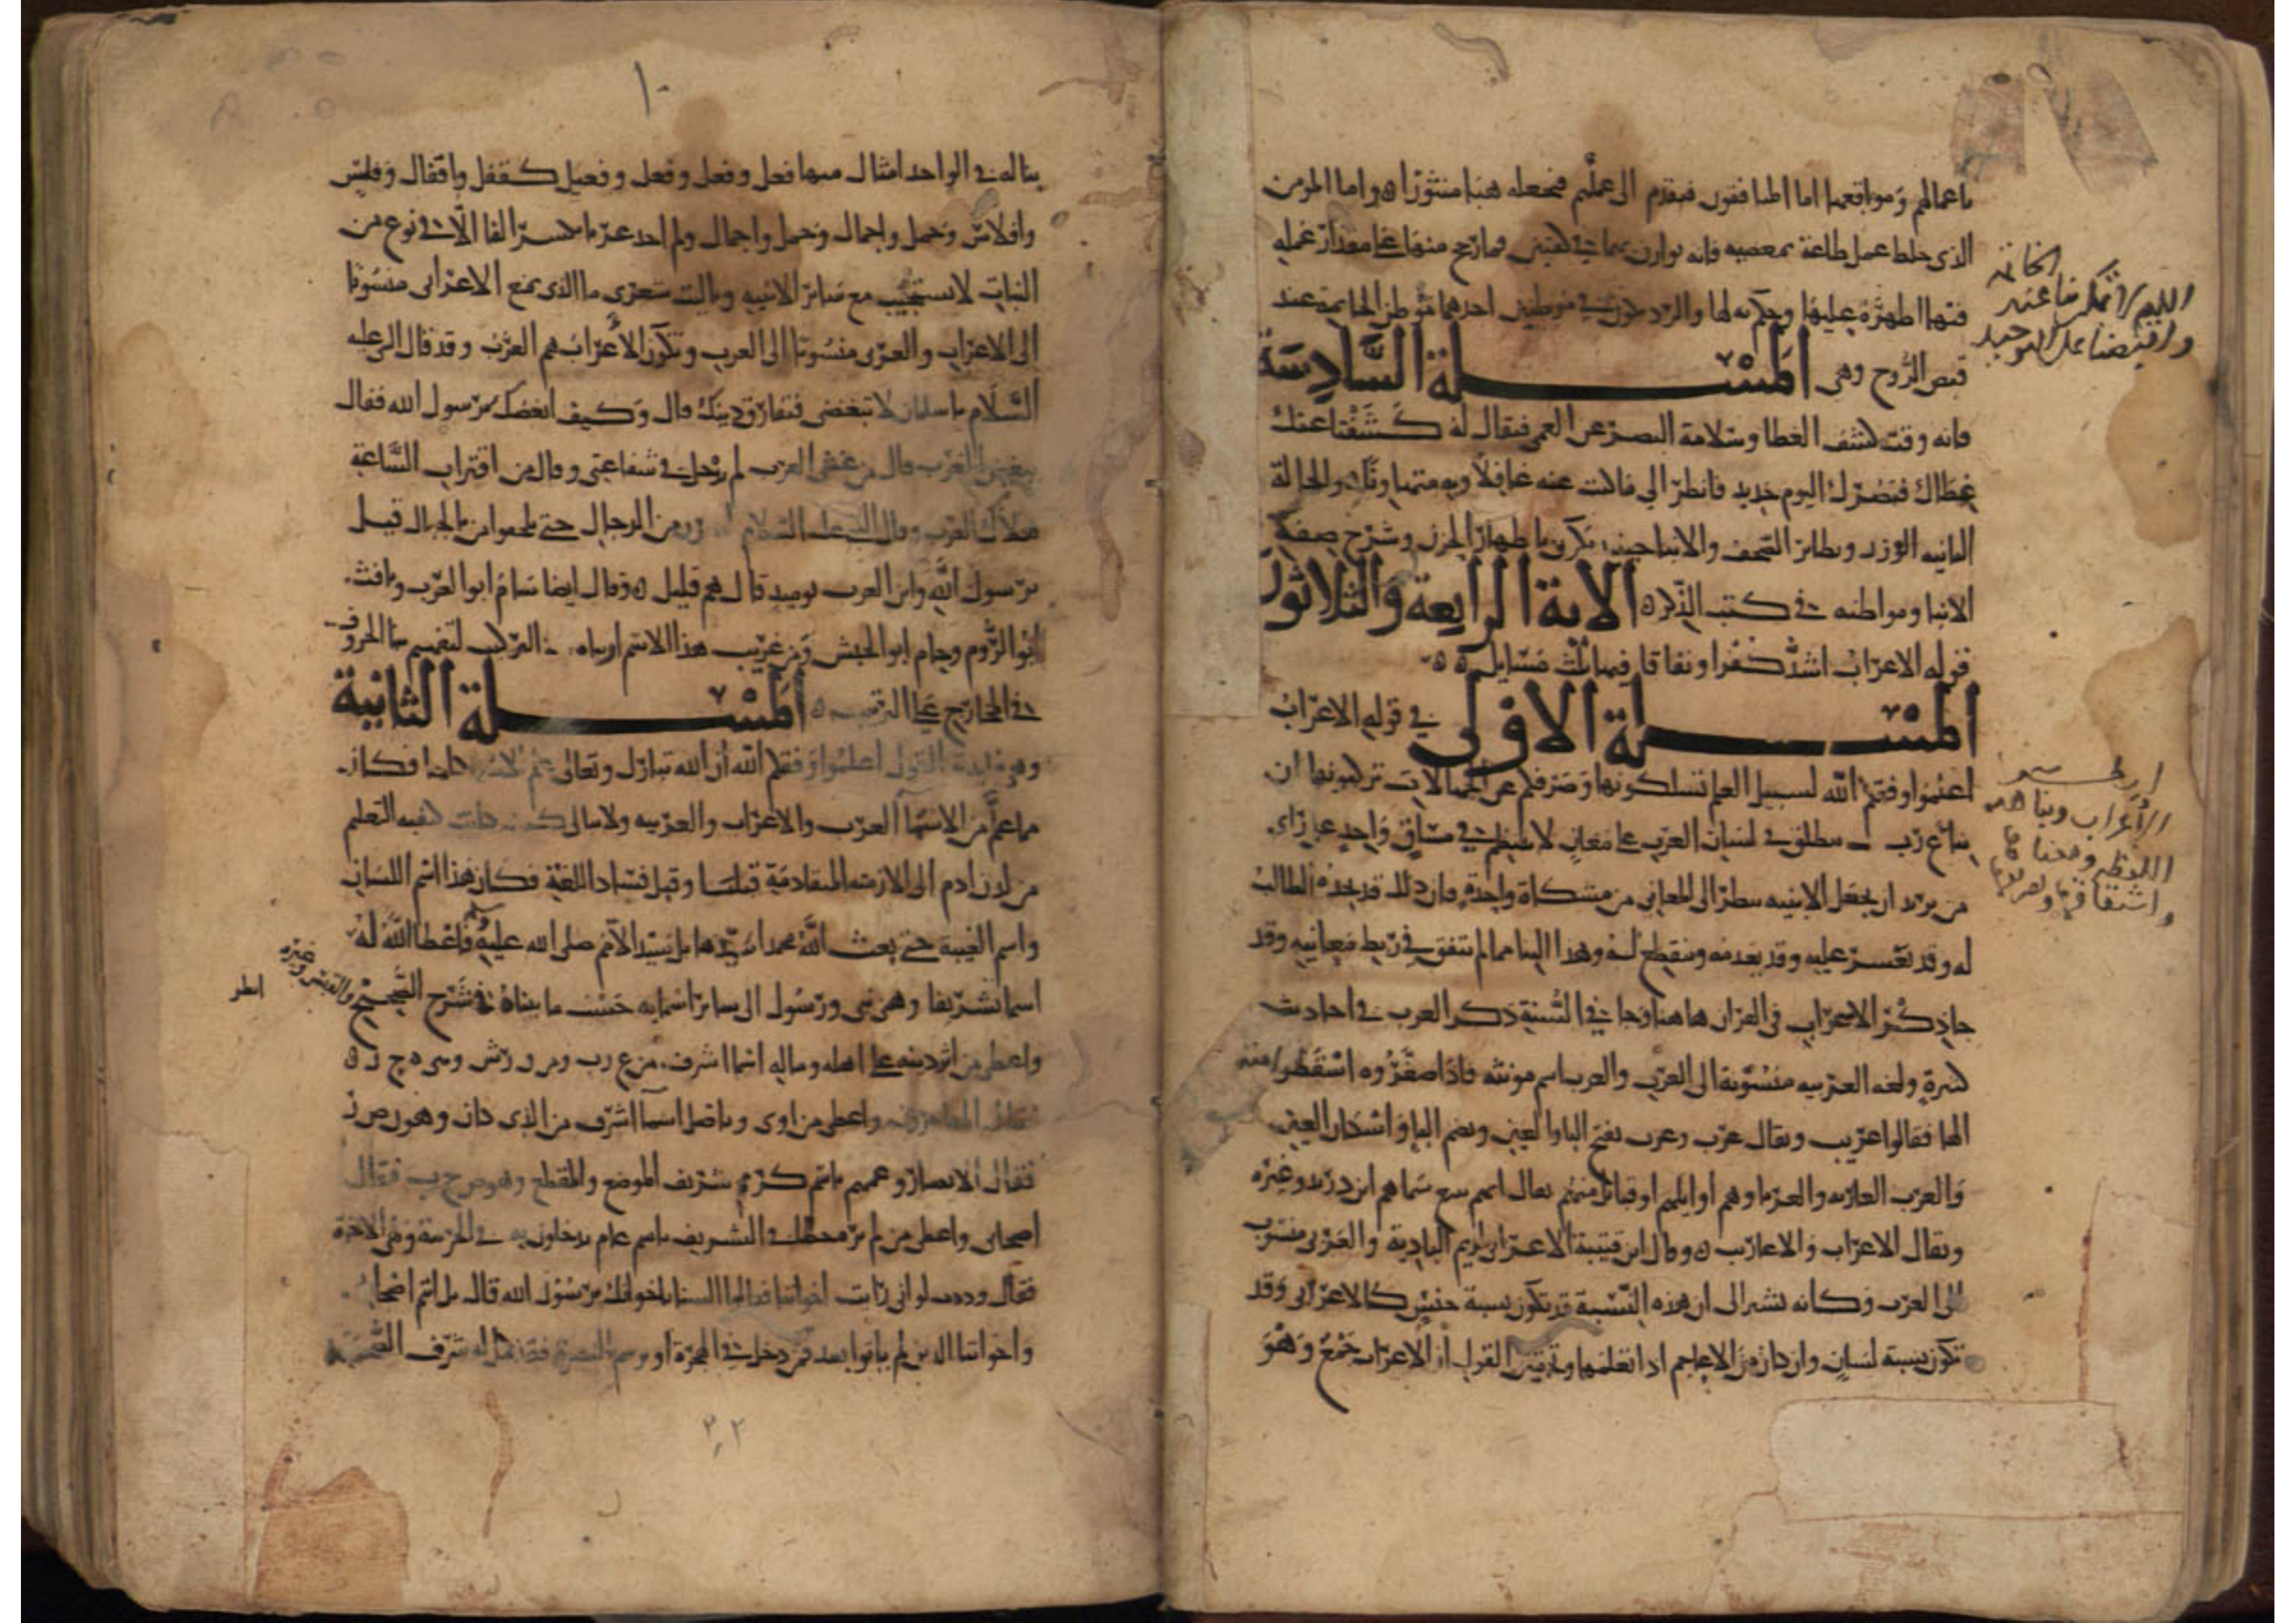 باعمالهم ومواقعها اما المنافقون فيقدم الى عملهم فيجعله هباء منثورا ه واما المؤمن
الذي خلط عمل طاعة بمعصيه فانه يوازن بينهما في كفتين فما رجح منهما على مقدار عمله
احدهما موطن الخاتمة عند
قبض الروح وهى المسـلة السادسة
فانه وقت كشف الغطا وسلامة البصر عن العمى فيقال له كشفنا عنك
غطاك فبصرك اليوم حديد فانظر الي ما كنت عنه غافلا وبه متهاونا والحالة
الثانيه الوزن وتطاير الصحف والانبا حينئذ تكون باظهار الجزا وشرح صفة
الانبا ومواطنه في كتب الذكر ه الاية الرابعة والثلاثون
قوله الاعراب اشد كفرا ونفاقا فيها ثلث مسايل ه
المسـلة الاولى في قوله الاعراب
اعلموا وفقكم الله لسبيل العلم تسلكونها وصرفكم عن الجهالات تركبونها ان
بنا ع ر ب ينطلق في لسان العرب على معان لا تنتظم في مساق واحد على راي
من يريد ان يجعل الابنيه تنظر الى المعاني من مشكاة واحدة فان ذلك قد يجده الطالب
له وقد يعسر عليه وقد يبعد منه وينقطع له وهذا البنا مما لم يتفق في ربط معانيه وقد
جا ذكر الاعراب في القران هاهنا وجا في السنة ذكر العرب في احاديث
كثيرة ولغه العربيه منسوبة الى العرب والعرب اسم مونثه فاذا صغروه اسقطوا منه
الها فقالوا عريب ويقال عرب وعرب بفتح الباوالعين وبضم البا واسكان العين
والعرب العاربه والعربا وهم اوايلهم او قبائل منهم يقال انهم سبع سماهم ابن دريد وغيره
ويقال الاعراب والاعاريب ه وقال ابن قتيبة الاعرابي لزيم البادية والعربي منسوب
الى العرب وكانه يشير الى ان هذه النسبة قد تكون نسبة جنس كالاعرابي وقد
تكون نسبة لسان وان كان من الاعاجم اذا تعلمها وتحقيق القول ان الاعراب جمع وهو
بنا له في الواحد امثال منها فعل وفعل وفعل وفعيل كقفل واقفال وفلس
وافلاس وحمل واحمال وجمل واجمال ولم اجد
النبات لا يستجيب مع سائر الابنيه وياليت شعري ما الذي يمنع الاعرابي منسوبا
الى الاعراب والعربي منسوبا الى العرب وتكون الاعراب هم العرب وقد قال النبي عليه
السلام يا سلمان لا تبغضني فتفارق دينك قال وكيف ابغضك يا رسول الله فقال
تبغض العرب قال من غش العرب لم يدخل في شفاعتي وقال من اقتراب الساعة
هلاك العرب وقال النبي عليه السلام من الرجال حتى يلحقوا بالجبال قيل
يا رسول الله واين العرب يوميذ قال هم قليل ه وقال ايضا سام ابو العرب ويافث
ابو الروم وحام ابو الحبش ومن غريب هذا الاسم
في المخارج على الترتيب ه المسـلة الثانية
وهو فايدة القول اعلموا وفقكم الله ان الله تبارك وتعالى علم ادم الاسما كلها فكان
مما علم من الاسما العرب والاعراب والعربيه ولا نبالي كيف كانت كيفية التعلم
من لدن ادم الى الازمنه المتقادمة قبلنا وقبل فساد اللغة فكان هذا اسم اللسان
واسم القبيلة حتى بعث الله محمدا سيدها بل سيد الامم صلى الله عليه وسلم فاعطا الله له
اسما شريفا وهو نبي ورسول الى سائر اسمايه حسب ما بيناه في شرح الصحيح والقبس وغيره
واعطى من اثر دينه على اهله وماله اسما اشرف من ع ر ب ومن ق ر ش وهو ه ج ر ه
فقال المهاجرون واعطى من اوى وناضل اسما اشرف من الذي كان وهو ن ص ر
فقال الانصار وعمهم باسم كريم شريف الموضع والمقطع وهو ص ح ب فقال
اصحابي واعطى من لم يره حظا في التشريف باسم عام يدخلون به في الحرمة وهي الاخوة
فقال وددت لو اني رايت اخواننا فقالوا السنا باخوانك يا رسول الله قال بل انتم اصحابي
واخواننا الذين لم ياتوا بعد فمن دخل في الهجرة او وسم بالنصرة فقد كمل له شرف الصحبة